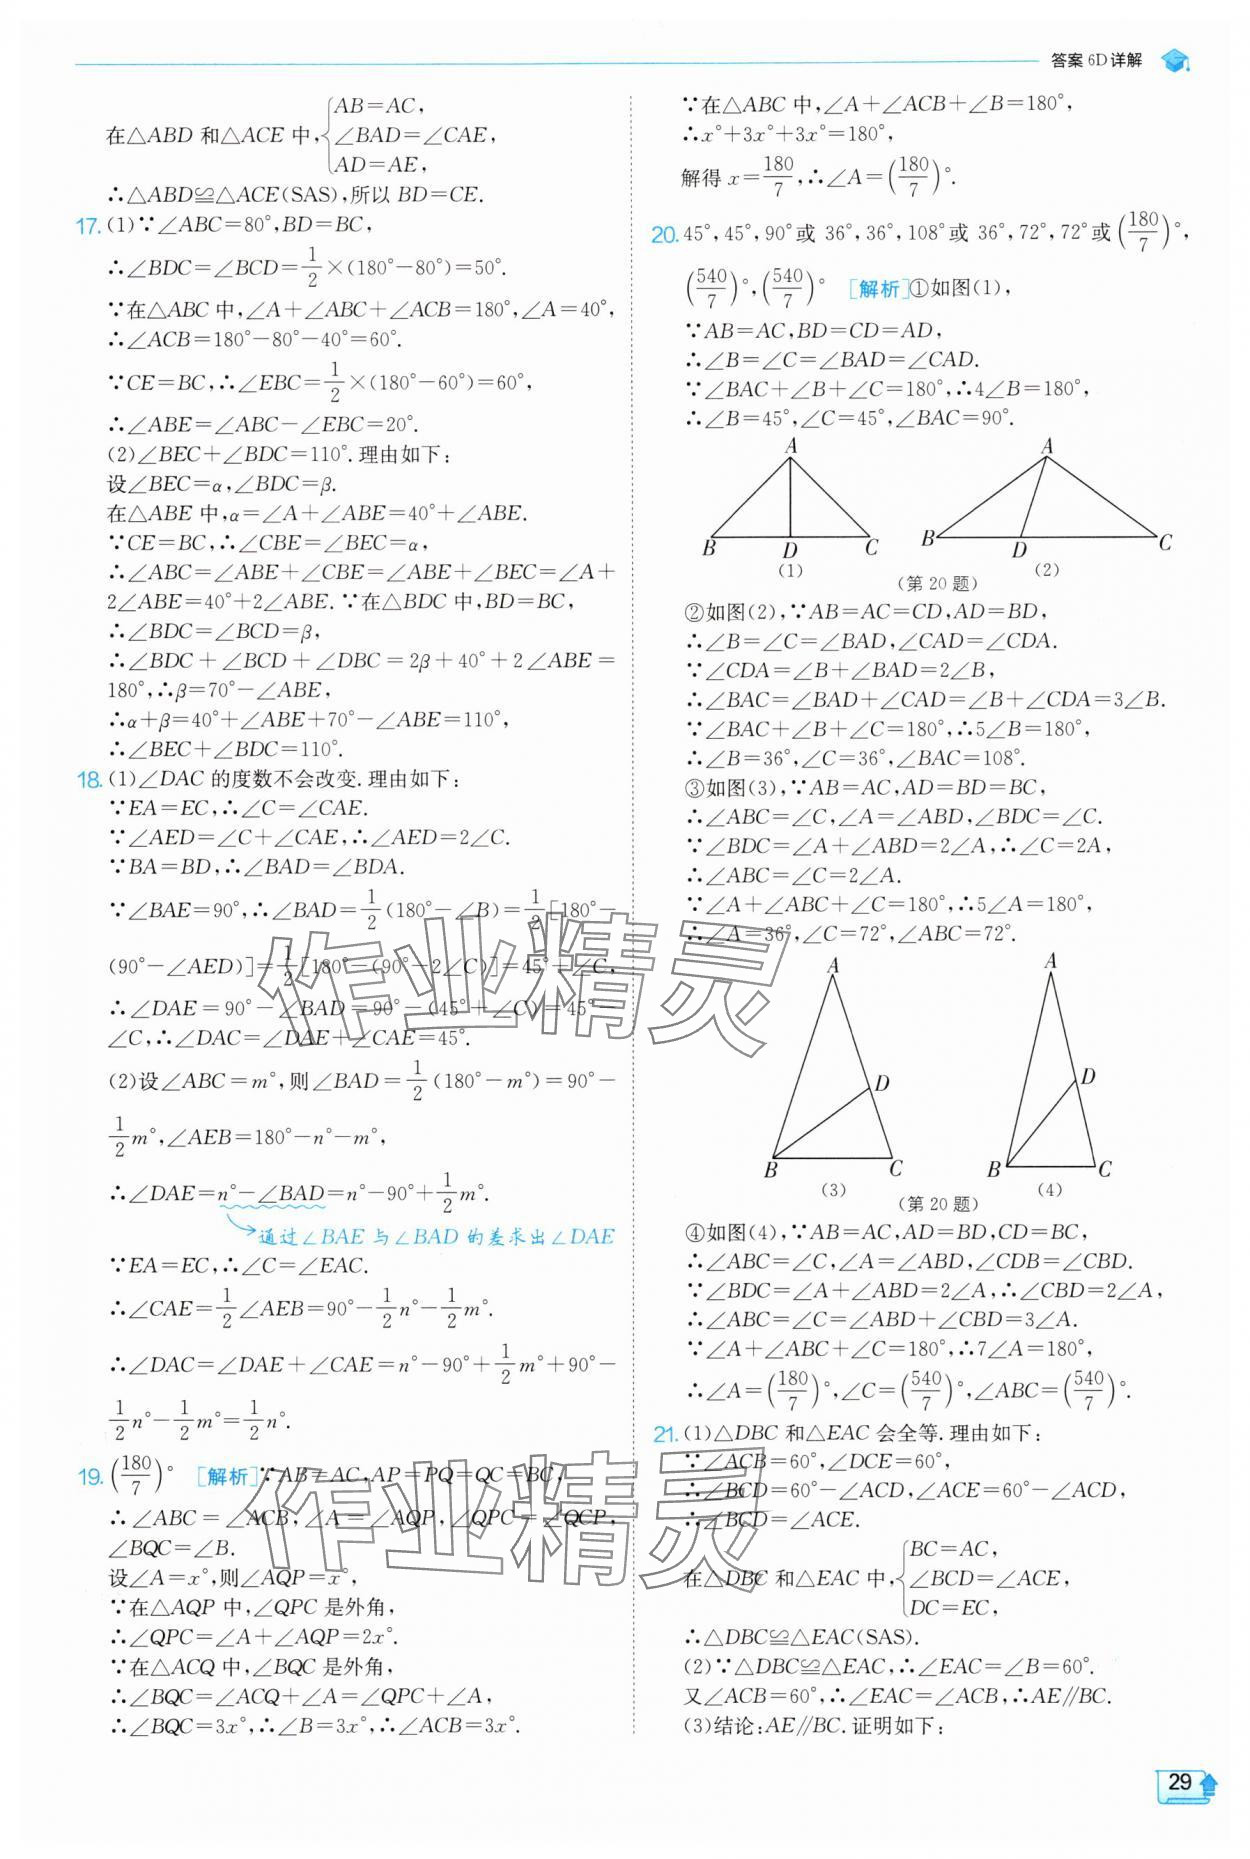 答案 6D详解
在△ABD 和△ACE 中,{AB=AC,
∠BAD=∠CAE,
AD=AE,
∴△ABD≌△ACE(SAS),所以 BD=CE.
17. (1)∵∠ABC=80°,BD=BC,
∴∠BDC=∠BCD=1/2×(180°-80°)=50°.
∵在△ABC 中,∠A+∠ABC+∠ACB=180°,∠A=40°,
∴∠ACB=180°-80°-40°=60°.
∵CE=BC,∴∠EBC=1/2×(180°-60°)=60°,
∴∠ABE=∠ABC-∠EBC=20°.
(2)∠BEC+∠BDC=110°.理由如下:
设∠BEC=α,∠BDC=β.
在△ABE 中,α=∠A+∠ABE=40°+∠ABE.
∵CE=BC,∴∠CBE=∠BEC=α,
∴∠ABC=∠ABE+∠CBE=∠ABE+∠BEC=∠A+
2∠ABE=40°+2∠ABE.∵在△BDC 中,BD=BC,
∴∠BDC=∠BCD=β,
∴∠BDC+∠BCD+∠DBC=2β+40°+2∠ABE=
180°,∴β=70°-∠ABE,
∴α+β=40°+∠ABE+70°-∠ABE=110°,
∴∠BEC+∠BDC=110°.
18. (1)∠DAC 的度数不会改变.理由如下:
∵EA=EC,∴∠C=∠CAE.
∵∠AED=∠C+∠CAE,∴∠AED=2∠C.
∵BA=BD,∴∠BAD=∠BDA.
∵∠BAE=90°,∴∠BAD=1/2(180°-∠B)=1/2[180°-
(90°-∠AED)]=1/2[180°-(90°-2∠C)]=45°+∠C,
∴∠DAE=90°-∠BAD=90°-(45°+∠C)=45°-
∠C,∴∠DAC=∠DAE+∠CAE=45°.
(2)设∠ABC=m°,则∠BAD=1/2(180°-m°)=90°-
1/2m°,∠AEB=180°-n°-m°,
∴∠DAE=n°-∠BAD=n°-90°+1/2m°.
通过∠BAE与∠BAD的差求出∠DAE
∵EA=EC,∴∠C=∠EAC.
∴∠CAE=1/2∠AEB=90°-1/2n°-1/2m°.
∴∠DAC=∠DAE+∠CAE=n°-90°+1/2m°+90°-
1/2n°-1/2m°=1/2n°.
19. (180/7)° [解析]∵AB=AC,AP=PQ=QC=BC,
∴∠ABC=∠ACB,∠A=∠AQP,∠QPC=∠QCP,
∠BQC=∠B.
设∠A=x°,则∠AQP=x°,
∵在△AQP 中,∠QPC 是外角,
∴∠QPC=∠A+∠AQP=2x°.
∵在△ACQ 中,∠BQC 是外角,
∴∠BQC=∠ACQ+∠A=∠QPC+∠A,
∴∠BQC=3x°,∴∠B=3x°,∴∠ACB=3x°.
∵在△ABC 中,∠A+∠ACB+∠B=180°,
∴x°+3x°+3x°=180°,
解得 x=180/7,∴∠A=(180/7)°.
20. 45°,45°,90°或 36°,36°,108°或 36°,72°,72°或(180/7)°,
(540/7)°,(540/7)° [解析]①如图(1),
∵AB=AC,BD=CD=AD,
∴∠B=∠C=∠BAD=∠CAD.
∵∠BAC+∠B+∠C=180°,∴4∠B=180°,
∴∠B=45°,∠C=45°,∠BAC=90°.
A A
B D C B D C
(1) (2)
(第 20 题)
②如图(2),∵AB=AC=CD,AD=BD,
∴∠B=∠C=∠BAD,∠CAD=∠CDA.
∵∠CDA=∠B+∠BAD=2∠B,
∴∠BAC=∠BAD+∠CAD=∠B+∠CDA=3∠B.
∵∠BAC+∠B+∠C=180°,∴5∠B=180°,
∴∠B=36°,∠C=36°,∠BAC=108°.
③如图(3),∵AB=AC,AD=BD=BC,
∴∠ABC=∠C,∠A=∠ABD,∠BDC=∠C.
∵∠BDC=∠A+∠ABD=2∠A,∴∠C=2A,
∴∠ABC=∠C=2∠A.
∵∠A+∠ABC+∠C=180°,∴5∠A=180°,
∴∠A=36°,∠C=72°,∠ABC=72°.
A A
D D
B C B C
(3) (4)
(第 20 题)
④如图(4),∵AB=AC,AD=BD,CD=BC,
∴∠ABC=∠C,∠A=∠ABD,∠CDB=∠CBD.
∵∠BDC=∠A+∠ABD=2∠A,∴∠CBD=2∠A,
∴∠ABC=∠C=∠ABD+∠CBD=3∠A.
∵∠A+∠ABC+∠C=180°,∴7∠A=180°,
∴∠A=(180/7)°,∠C=(540/7)°,∠ABC=(540/7)°.
21. (1)△DBC 和△EAC 会全等.理由如下:
∵∠ACB=60°,∠DCE=60°,
∴∠BCD=60°-∠ACD,∠ACE=60°-∠ACD,
∴∠BCD=∠ACE.
在△DBC 和△EAC 中,{BC=AC,
∠BCD=∠ACE,
DC=EC,
∴△DBC≌△EAC(SAS).
(2)∵△DBC≌△EAC,∴∠EAC=∠B=60°.
又∠ACB=60°,∴∠EAC=∠ACB,∴AE∥BC.
(3)结论:AE∥BC.证明如下:
作业精灵
作业精灵
29